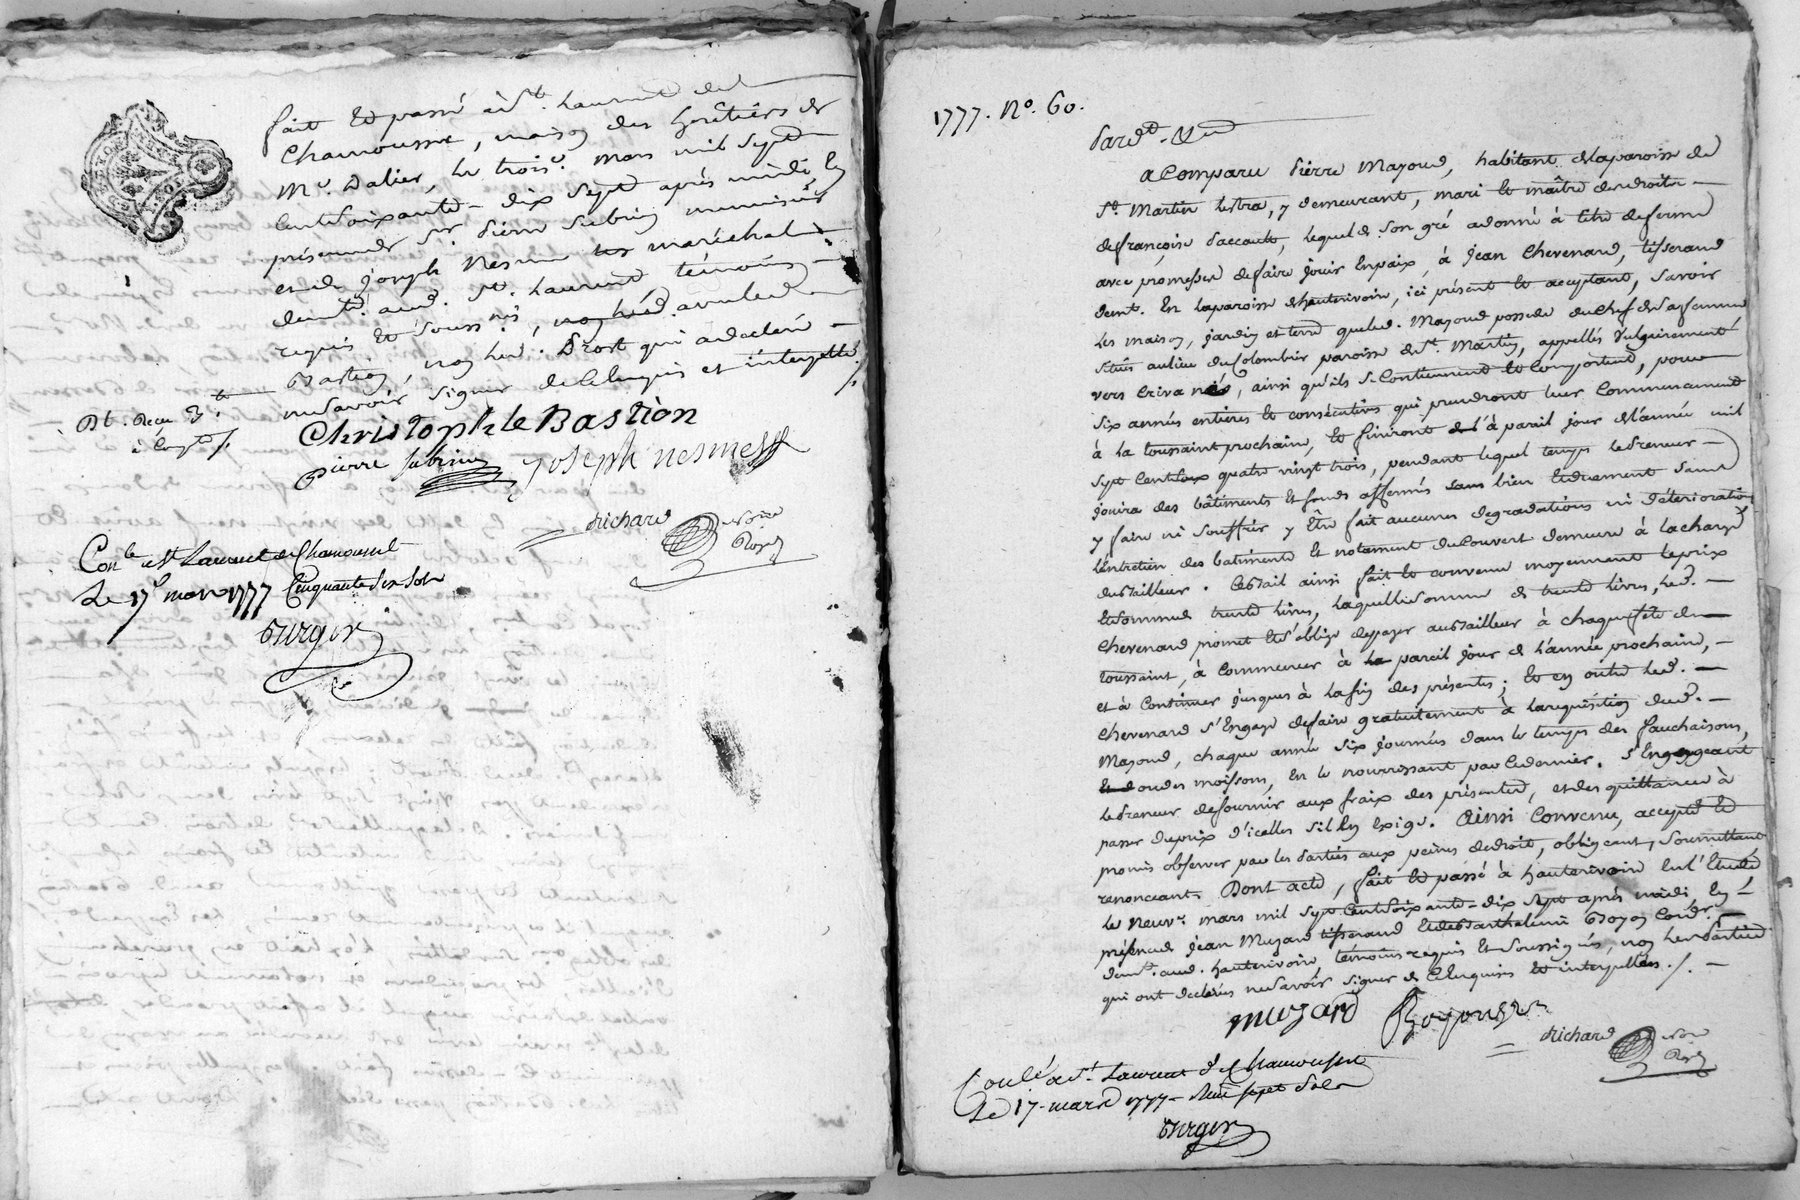 fait et passé à St. Laurent de
Chamousset, maison des héritiers de
Mr. Dalier, le trois. mars mil sept
cent soixante-dix sept après midi, En
présence de sr. Pierre Subrin
et de Joseph Nesme maréchal
demt. aud. St. Laurent, témoins
requis et soussnés, avec led.
Bastion, non led. Drost qui a déclaré
ne savoir signer de ce enquis et interpellé ./.
Bt. Recu 3.
Christophle Bastion
pierre subrin
joseph nesme
Richard
Nore
Royal
Conlé. a St Laurent de Chamousset
Le 17 mars 1777 Cinquante six sols
1777. No. 60.
Pardt.
a Comparu Pierre Mazoud, habitant de la paroisse de
St. Martin Lestra, y demeurant, mari et maître des droits
de françoise Paccoud, lequel de son gré a donné à titre de ferme
avec promesse de faire jouir en paix, à Jean Chevenard, tisserand
demt. En la paroisse d'hauterivoire, ici présent et acceptant, Savoir
les maison, jardin et terre que led. Mazoud possede du chef de sa femme
situés au lieu du Colombier paroisse de St. Martin, appellés Vulgairement
vers, ainsi qu'ils se Contiennent et Comportent, pour
six années entières et consécutives qui prendront leur Commencement
à la toussaint prochaine, et finiront à pareil jour de l'année mil
sept Cent quatre vingt trois, pendant lequel temps le Preneur
jouira des bâtiments et fonds affermés bien et duement sans
y faire ni souffrir y être fait aucunes degradations ni détériorations
l'entretien des batiments et notament du Couvert demeure à la charge
du Bailleur. Ce Bail ainsi fait et convenu moyennant le prix
et somme de trente livres, laquelle somme de trente livres, led.
Chevenard promet et s'oblige de payer au Bailleur à chaque fête de
toussaint, à Commencer à pareil jour de l'année prochaine,
et à Continuer jusques à la fin des présentes; et en outre led.
Chevenard s'Engage de faire gratuitement à la requisition dud.
Mazoud, chaque année six journées dans le temps des fauchaisons,
ou des moissons, En le nourrissant par le dernier. s'Engageant
le Preneur de fournir aux fraix des présentes, et des quittances à
passer du prix d'icelles s'il l'En Exige. Ainsi Convenu, accepté et
promis observer par les Parties aux peines de droit, obligeant, Soumettant
renonceant. Dont acte, fait et passé à hauterivoire En l'Etude
le neuve. mars mil sept Cent soixante-dix sept après midi, En
présence de Jean Muzard tisserand et de Barthelemi Boyon
demt. aud. hauterivoire témoins requis et soussignés, non les Parties
qui ont déclarés ne savoir signer de ce Enquises et interpellées ./.
muzard
Boyon
Richard
Nore
Royal
Conlé a St. Laurent de Chamousset
Le 17. mars 1777 - sept sols